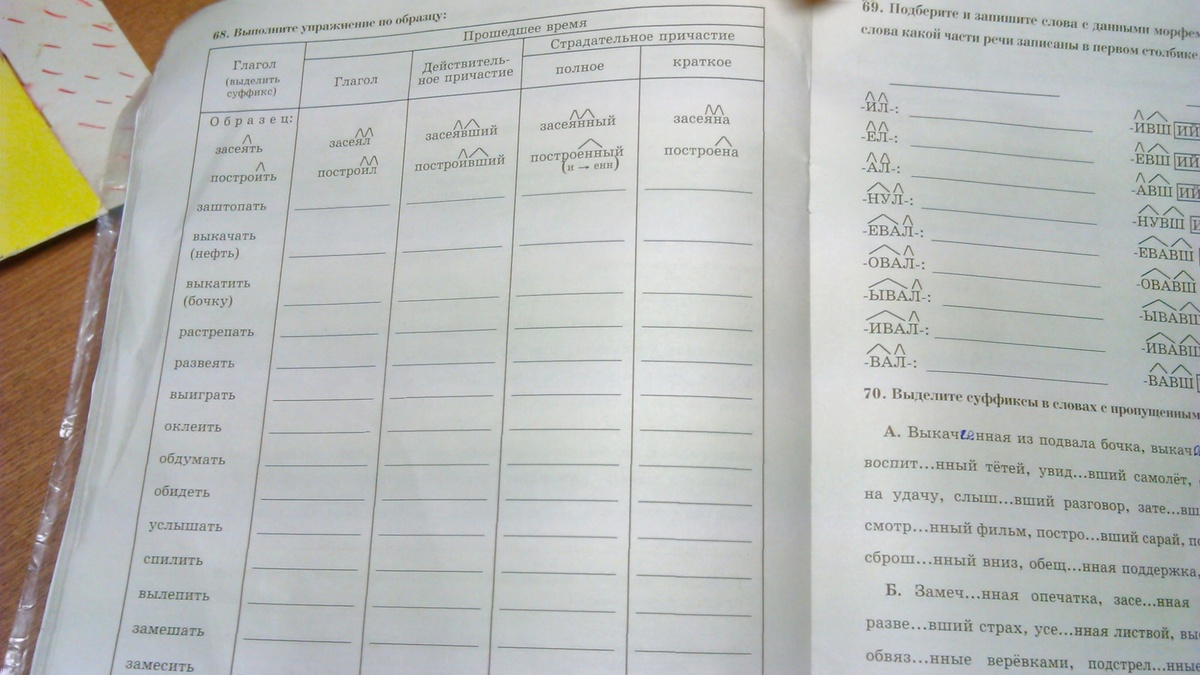 68. Выполните упражнение по образцу:
Глагол
(выделить
суффикс)
Прошедшее время
Глагол
Действитель-
ное причастие
Страдательное причастие
полное
краткое
Образец:
засеять засеял засеявший засеянный засеяна
построить построил построивший построенный построена
(и → енн)
заштопать
выкачать
(нефть)
выкатить
(бочку)
растрепать
развеять
выиграть
оклеить
обдумать
обидеть
услышать
спилить
вылепить
замешать
замесить
69. Подберите и запишите слова с данными
слова какой части речи записаны в первом столбике
-ИЛ-: -ИВШ ИЙ
-ЕЛ-: -ЕВШ ИЙ
-АЛ-: -АВШ ИЙ
-НУЛ-: -НУВШ
-ЕВАЛ-: -ЕВАВШ
-ОВАЛ-: -ОВАВШ
-ЫВАЛ-: -ЫВАВШ
-ИВАЛ-: -ИВАВШ
-ВАЛ-: -ВАВШ
70. Выделите суффиксы в словах с
А. Выкаченная из подвала бочка,
воспит...нный тётей, увид...вший самолёт,
на удачу, слыш...вший разговор,
смотр...нный фильм, постро...вший сарай,
сброш...нный вниз, обещ...нная поддержка,
Б. Замеч...нная опечатка, засе...нная
разве...вший страх, усе...нная листвой,
обвяз...нные верёвками,